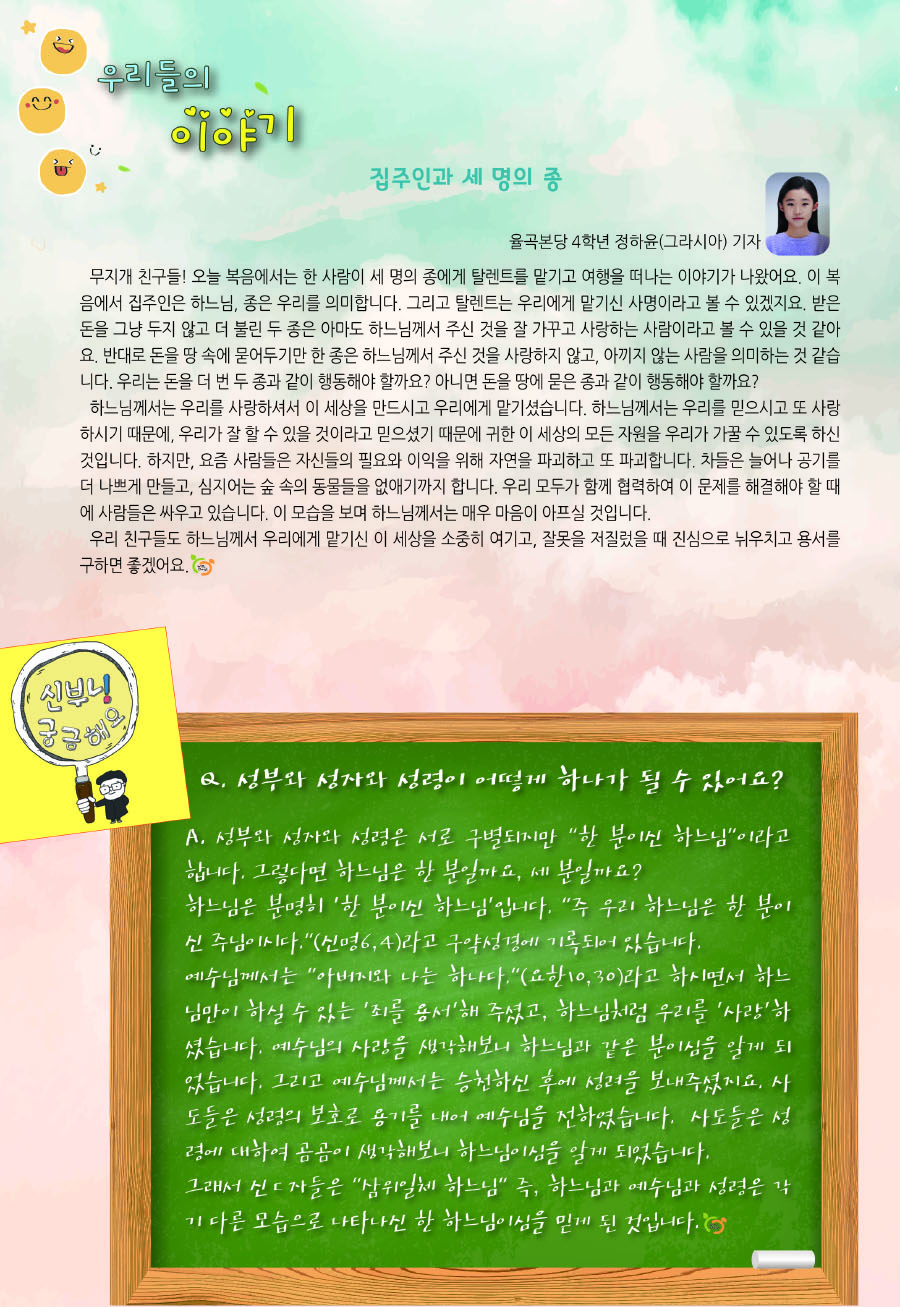 우리들의
이야기
집주인과 세 명의 종
율곡본당 4학년 정하윤(그라시아) 기자
무지개 친구들! 오늘 복음에서는 한 사람이 세 명의 종에게 탈렌트를 맡기고 여행을 떠나는 이야기가 나왔어요. 이 복
음에서 집주인은 하느님, 종은 우리를 의미합니다. 그리고 탈렌트는 우리에게 맡기신 사명이라고 볼 수 있겠지요. 받은
돈을 그냥 두지 않고 더 불린 두 종은 아마도 하느님께서 주신 것을 잘 가꾸고 사랑하는 사람이라고 볼 수 있을 것 같아
요. 반대로 돈을 땅 속에 묻어두기만 한 종은 하느님께서 주신 것을 사랑하지 않고, 아끼지 않는 사람을 의미하는 것 같습
니다. 우리는 돈을 더 번 두 종과 같이 행동해야 할까요? 아니면 돈을 땅에 묻은 종과 같이 행동해야 할까요?
하느님께서는 우리를 사랑하셔서 이 세상을 만드시고 우리에게 맡기셨습니다. 하느님께서는 우리를 믿으시고 또 사랑
하시기 때문에, 우리가 잘 할 수 있을 것이라고 믿으셨기 때문에 귀한 이 세상의 모든 자원을 우리가 가꿀 수 있도록 하신
것입니다. 하지만, 요즘 사람들은 자신들의 필요와 이익을 위해 자연을 파괴하고 또 파괴합니다. 차들은 늘어나 공기를
더 나쁘게 만들고, 심지어는 숲 속의 동물들을 없애기까지 합니다. 우리 모두가 함께 협력하여 이 문제를 해결해야 할 때
에 사람들은 싸우고 있습니다. 이 모습을 보며 하느님께서는 매우 마음이 아프실 것입니다.
우리 친구들도 하느님께서 우리에게 맡기신 이 세상을 소중히 여기고, 잘못을 저질렀을 때 진심으로 뉘우치고 용서를
구하면 좋겠어요.
신부님
궁금해요
Q. 성부와 성자와 성령이 어떻게 하나가 될 수 있어요?
A. 성부와 성자와 성령은 서로 구별되지만 "한 분이신 하느님"이라고
합니다. 그렇다면 하느님은 한 분일까요, 세 분일까요?
하느님은 분명히 '한 분이신 하느님'입니다. "주 우리 하느님은 한 분이
신 주님이시다."(신명6,4)라고 구약성경에 기록되어 있습니다.
예수님께서는 "아버지와 나는 하나다."(요한10,30)라고 하시면서 하느
님만이 하실 수 있는 '죄를 용서'해 주셨고, 하느님처럼 우리를 '사랑'하
셨습니다. 예수님의 사랑을 생각해보니 하느님과 같은 분이심을 알게 되
었습니다. 그리고 예수님께서는 승천하신 후에 성려을 보내주셨지요. 사
도들은 성령의 보호로 용기를 내어 예수님을 전하였습니다. 사도들은 성
령에 대하여 곰곰이 생각해보니 하느님이심을 알게 되었습니다.
그래서 신ㄷ자들은 "삼위일체 하느님" 즉, 하느님과 예수님과 성령은 각
기 다른 모습으로 나타나신 한 하느님이심을 믿게 된 것입니다.